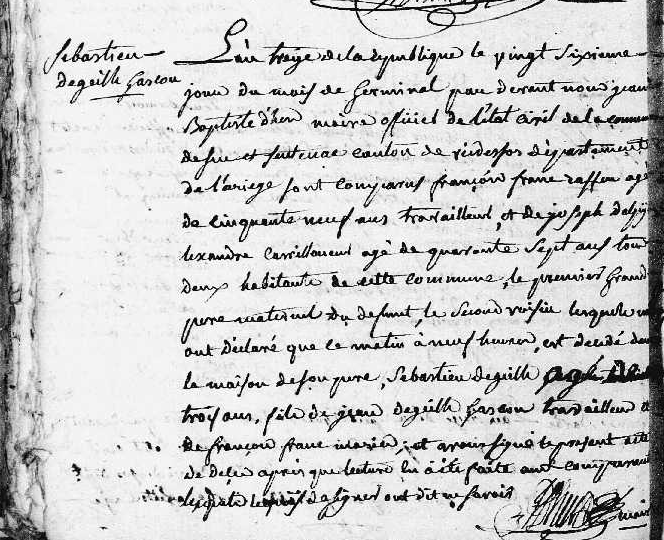 Sebastien
degeilh gascou
L'an treize de la republique le vingt sixieme
jour du mois de Germinal par devant nous jean
Baptiste d'hers maire officier de l'état civil de la commune
de suc et sentenac canton de vicdessos département
de l'ariege sont comparus françois franc raffou agé
de cinquante neuf ans travailleur, et de joseph
lexandre carrilloneur agé de quarante sept ans tous
deux habitants de cette commune, le premier grand
pere maternel du defunt, le second voisin lesquels
ont déclaré que ce matin à neuf heures, est decédé dans
la maison de son pere, Sebastien degeilh agé de
trois ans, fils de jean degeilh gascou travailleur et
de françois franc mariés; et avons signé le present acte
de decès apres que lecture en a été faite aux comparants
lesquels requis de signer ont dit ne savoir
maire